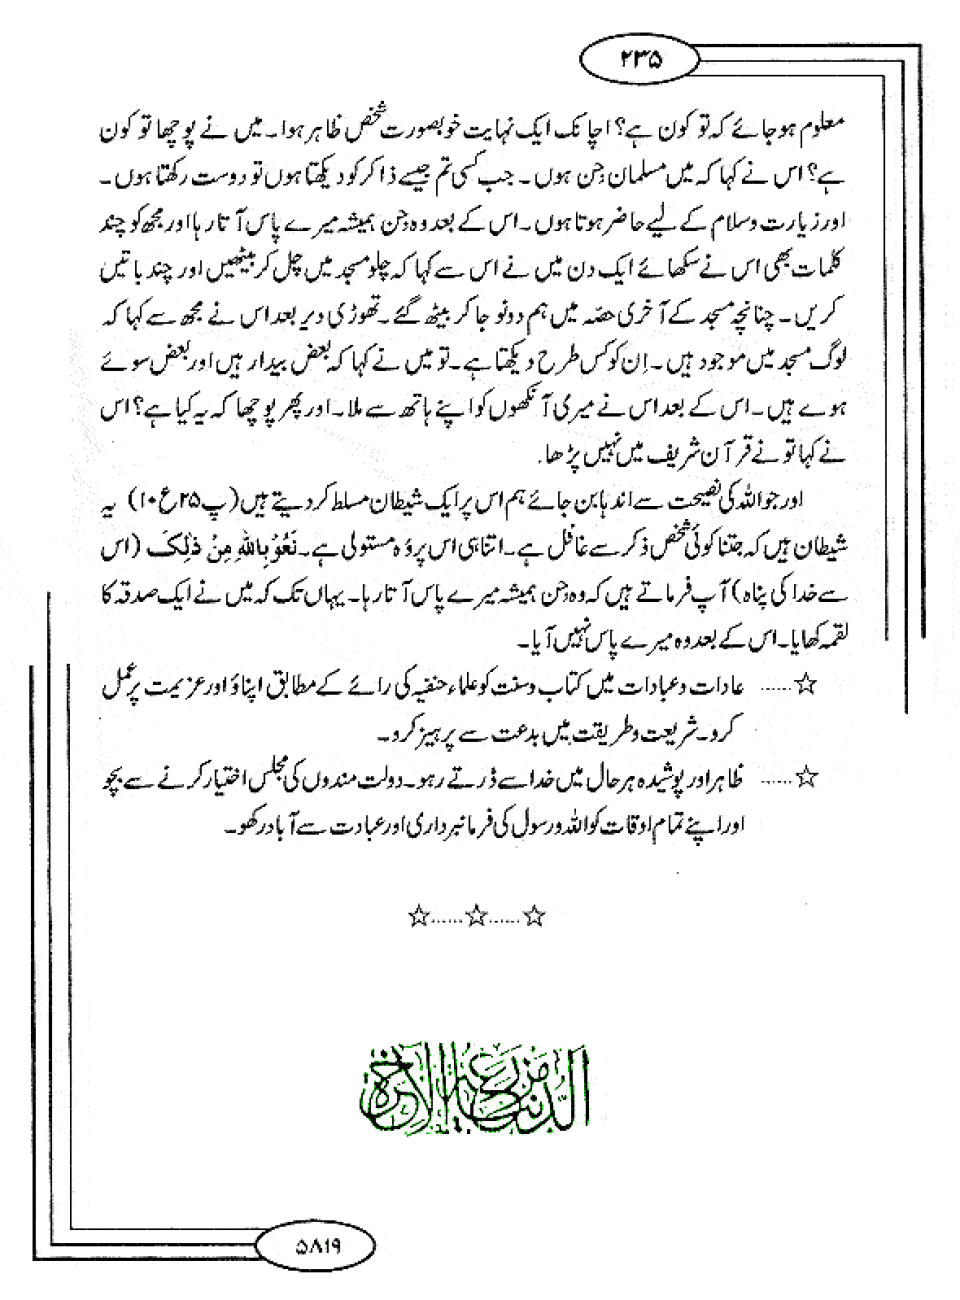 ۲۳۵
معلوم ہو جائے کہ تو کون ہے؟ اچانک ایک نہایت خوبصورت شخص ظاہر ہوا۔ میں نے پوچھا تو کون
ہے؟ اس نے کہا کہ میں مسلمان جن ہوں۔ جب کسی تم جیسے ذاکر کو دیکھتا ہوں تو دوست رکھتا ہوں۔
اور زیارت و سلام کے لیے حاضر ہوتا ہوں۔ اس کے بعد وہ جن ہمیشہ میرے پاس آتا رہا اور مجھ کو چند
کلمات بھی اس نے سکھائے ایک دن میں نے اس سے کہا کہ چلو مسجد میں چل کر بیٹھیں اور چند باتیں
کریں۔ چنانچہ مسجد کے آخری حصّہ میں ہم دونو جا کر بیٹھ گئے۔ تھوڑی دیر بعد اس نے مجھ سے کہا کہ
لوگ مسجد میں موجود ہیں۔ اِن کو کس طرح دیکھتا ہے۔ تو میں نے کہا کہ بعض بیدار ہیں اور بعض سوئے
ہوے ہیں۔ اس کے بعد اس نے میری آنکھوں کو اپنے ہاتھ سے ملا۔ اور پھر پوچھا کہ یہ کیا ہے؟ اس
نے کہا تو نے قرآن شریف میں نہیں پڑھا.
اور جو اللہ کی نصیحت سے اندہا بن جائے ہم اس پر ایک شیطان مسلط کر دیتے ہیں (پ۲۵ع۱۰) یہ
شیطان ہیں کہ جتنا کوئی شخص ذکر سے غافل ہے۔ اتنا ہی اس پر وُہ مستولی ہے۔ نَعُوْ بِاللهِ مِنْ ذٰلِکَ (اس
سے خدا کی پناہ) آپ فرماتے ہیں کہ وہ جن ہمیشہ میرے پاس آتا رہا۔ یہاں تک کہ میں نے ایک صدقہ کا
لقمہ کھایا۔ اس کے بعد وہ میرے پاس نہیں آیا۔
☆...... عادات و عبادات میں کتاب و سنت کو علماء حنفیہ کی رائے کے مطابق اپناؤ اور عزیمت پر عمل
کرو۔ شریعت و طریقت میں بدعت سے پرہیز کرو۔
☆...... ظاہر اور پوشیدہ ہر حال میں خدا سے ڈرتے رہو۔ دولت مندوں کی مجلس اختیار کرنے سے بچو
اور اپنے تمام اوقات کو اللہ و رسول کی فرمانبرداری اور عبادت سے آباد رکھو۔
☆......☆......☆
الدنیا مزرعة الآخرة
۵۸۱۹